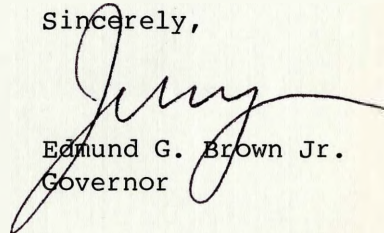 Sincerely,
Jerry
Edmund G. Brown Jr.
Governor